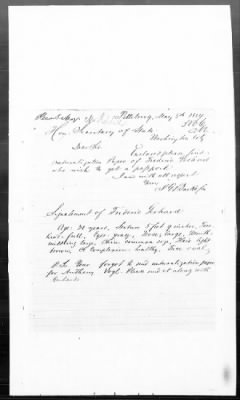 Pittsburg, May 5th 1874
Hon. Secretary of State
Washington City
Dear Sir
Enclosed please find
naturalization Paper of Frederic
who wish to get a passport.
I am with all respect
Yours
Signalement of Frederic Gerhard
Age: 34 years, Stature 5 feet 9 inches, Fore
head: full, Eyes: gray, Nose: large, Mouth:
middling large, Chin: common size, Hair: light
brown, Complexion: healthy, Face oval,
P.S. forgot to send naturalization paper
for Anthony Vogl. Please send it along with